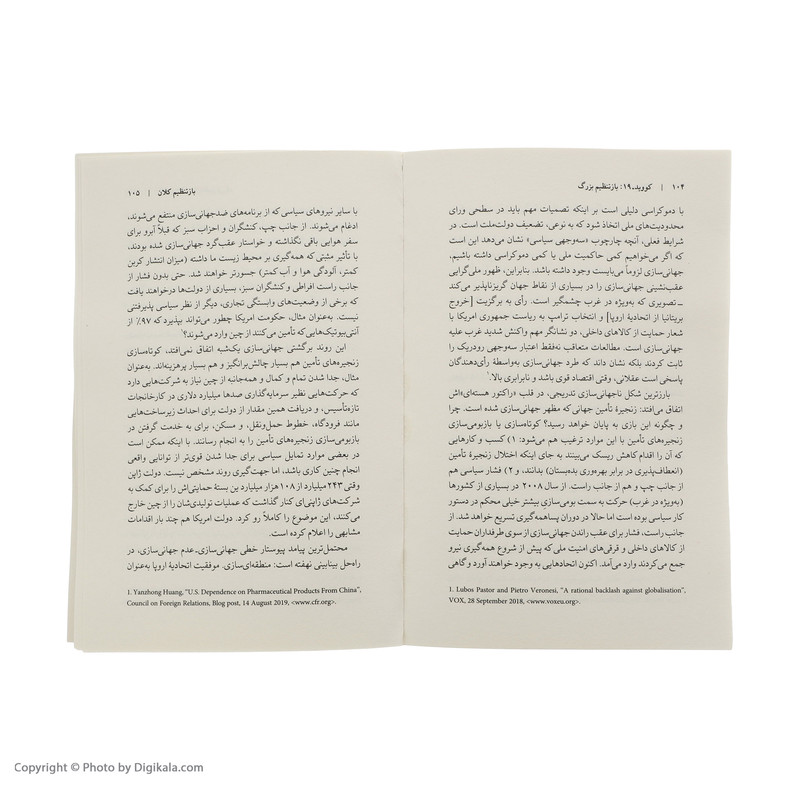 ۱۰۴ | کووید-۱۹: بازتنظیم بزرگ
با دموکراسی دلیلی است بر اینکه تصمیمات مهم باید در سطحی ورای
محدودیت‌های ملی اتخاذ شود که به نوعی، تضعیف دولت‌ملت است. در
شرایط فعلی، آنچه چارچوب «سه‌وجهی سیاسی» نشان می‌دهد این است
که اگر می‌خواهیم کمی حاکمیت ملی یا کمی دموکراسی داشته باشیم،
جهانی‌سازی لزوماً می‌بایست وجود داشته باشد. بنابراین، ظهور ملی‌گرایی
عقب‌نشینی جهانی‌سازی را در بسیاری از نقاط جهان گریزناپذیر می‌کند
ـ تصویری که به‌ویژه در غرب چشمگیر است. رأی به برگزیت [خروج
بریتانیا از اتحادیهٔ اروپا] و انتخاب ترامپ به ریاست جمهوری امریکا با
شعار حمایت از کالاهای داخلی، دو نشانگر مهم واکنش شدید غرب علیه
جهانی‌سازی است. مطالعات متعاقب نه‌فقط اعتبار سه‌وجهی رودریک را
ثابت کردند بلکه نشان داد که طرد جهانی‌سازی به‌واسطهٔ رأی‌دهندگان
پاسخی است عقلانی، وقتی اقتصاد قوی باشد و نابرابری بالا.۱
بارزترین شکل ناجهانی‌سازی تدریجی، در قلب «راکتور هسته‌ای»اش
اتفاق می‌افتد: زنجیرهٔ تأمین جهانی که مظهر جهانی‌سازی شده است. چرا
و چگونه این بازی به پایان خواهد رسید؟ کوتاه‌سازی یا بازبومی‌سازی
زنجیره‌های تأمین با این موارد ترغیب هم می‌شود: ۱) کسب و کارهایی
که آن را اقدام کاهش ریسک می‌بینند به جای اینکه اختلال زنجیرهٔ تأمین
(انعطاف‌پذیری در برابر بهره‌وری بده‌بستان) بدانند، و ۲) فشار سیاسی هم
از جانب چپ و هم از جانب راست. از سال ۲۰۰۸ در بسیاری از کشورها
(به‌ویژه در غرب) حرکت به سمت بومی‌سازی بیشتر خیلی محکم در دستور
کار سیاسی بوده است اما حالا در دوران پساهمه‌گیری تسریع خواهد شد. از
جانب راست، فشار برای عقب راندن جهانی‌سازی از سوی طرفداران حمایت
از کالاهای داخلی و قرقی‌های امنیت ملی که پیش از شروع همه‌گیری نیرو
جمع می‌کردند وارد می‌آمد. اکنون اتحادهایی به وجود خواهند آورد و گاهی
1. Lubos Pastor and Pietro Veronesi, "A rational backlash against globalisation",
VOX, 28 September 2018, <www.voxeu.org>.
بازتنظیم کلان | ۱۰۵
با سایر نیروهای سیاسی که از برنامه‌های ضدجهانی‌سازی منتفع می‌شوند،
ادغام می‌شوند. از جانب چپ، کنشگران و احزاب سبز که قبلاً آبرو برای
سفر هوایی باقی نگذاشته و خواستار عقب‌گرد جهانی‌سازی شده بودند،
با تأثیر مثبتی که همه‌گیری بر محیط زیست ما داشته (میزان انتشار کربن
کمتر، آلودگی هوا و آب کمتر) جسورتر خواهند شد. حتی بدون فشار از
جانب راست افراطی و کنشگران سبز، بسیاری از دولت‌ها درخواهند یافت
که برخی از وضعیت‌های وابستگی تجاری، دیگر از نظر سیاسی پذیرفتنی
نیست. به‌عنوان مثال، حکومت امریکا چطور می‌تواند بپذیرد که ۹۷٪ از
آنتی‌بیوتیک‌هایی که تأمین می‌کنند از چین وارد می‌شوند؟۱
این روند برگشتی جهانی‌سازی یک‌شبه اتفاق نمی‌افتد، کوتاه‌سازی
زنجیره‌های تأمین هم بسیار چالش‌برانگیز و هم بسیار پرهزینه‌اند. به‌عنوان
مثال، جدا شدن تمام و کمال و همه‌جانبه از چین نیاز به شرکت‌هایی دارد
که حرکت‌هایی نظیر سرمایه‌گذاری صدها میلیارد دلاری در کارخانجات
تازه‌تأسیس، و دریافت همین مقدار از دولت برای احداث زیرساخت‌هایی
مانند فرودگاه، خطوط حمل‌ونقل، و مسکن، برای به خدمت گرفتن در
بازبومی‌سازی زنجیره‌های تأمین را به انجام رسانند. با اینکه ممکن است
در بعضی موارد تمایل سیاسی برای جدا شدن قوی‌تر از توانایی واقعی
انجام چنین کاری باشد، اما جهت‌گیری روند مشخص نیست. دولت ژاپن
وقتی ۲۴۳ میلیارد از ۱۰۸ هزار میلیارد ین بستهٔ حمایتی‌اش را برای کمک به
شرکت‌های ژاپنی‌ای کنار گذاشت که عملیات تولیدی‌شان را از چین خارج
می‌کنند، این موضوع را کاملاً رو کرد. دولت امریکا هم چند بار اقدامات
مشابهی را اعلام کرده است.
محتمل‌ترین پیامد پیوستار خطی جهانی‌سازی-عدم جهانی‌سازی، در
راه‌حل بینابینی نهفته است: منطقه‌ای‌سازی. موفقیت اتحادیهٔ اروپا به‌عنوان
1. Yanzhong Huang, "U.S. Dependence on Pharmaceutical Products From China",
Council on Foreign Relations, Blog post, 14 August 2019, <www.cfr.org>.
Copyright © Photo by Digikala.com